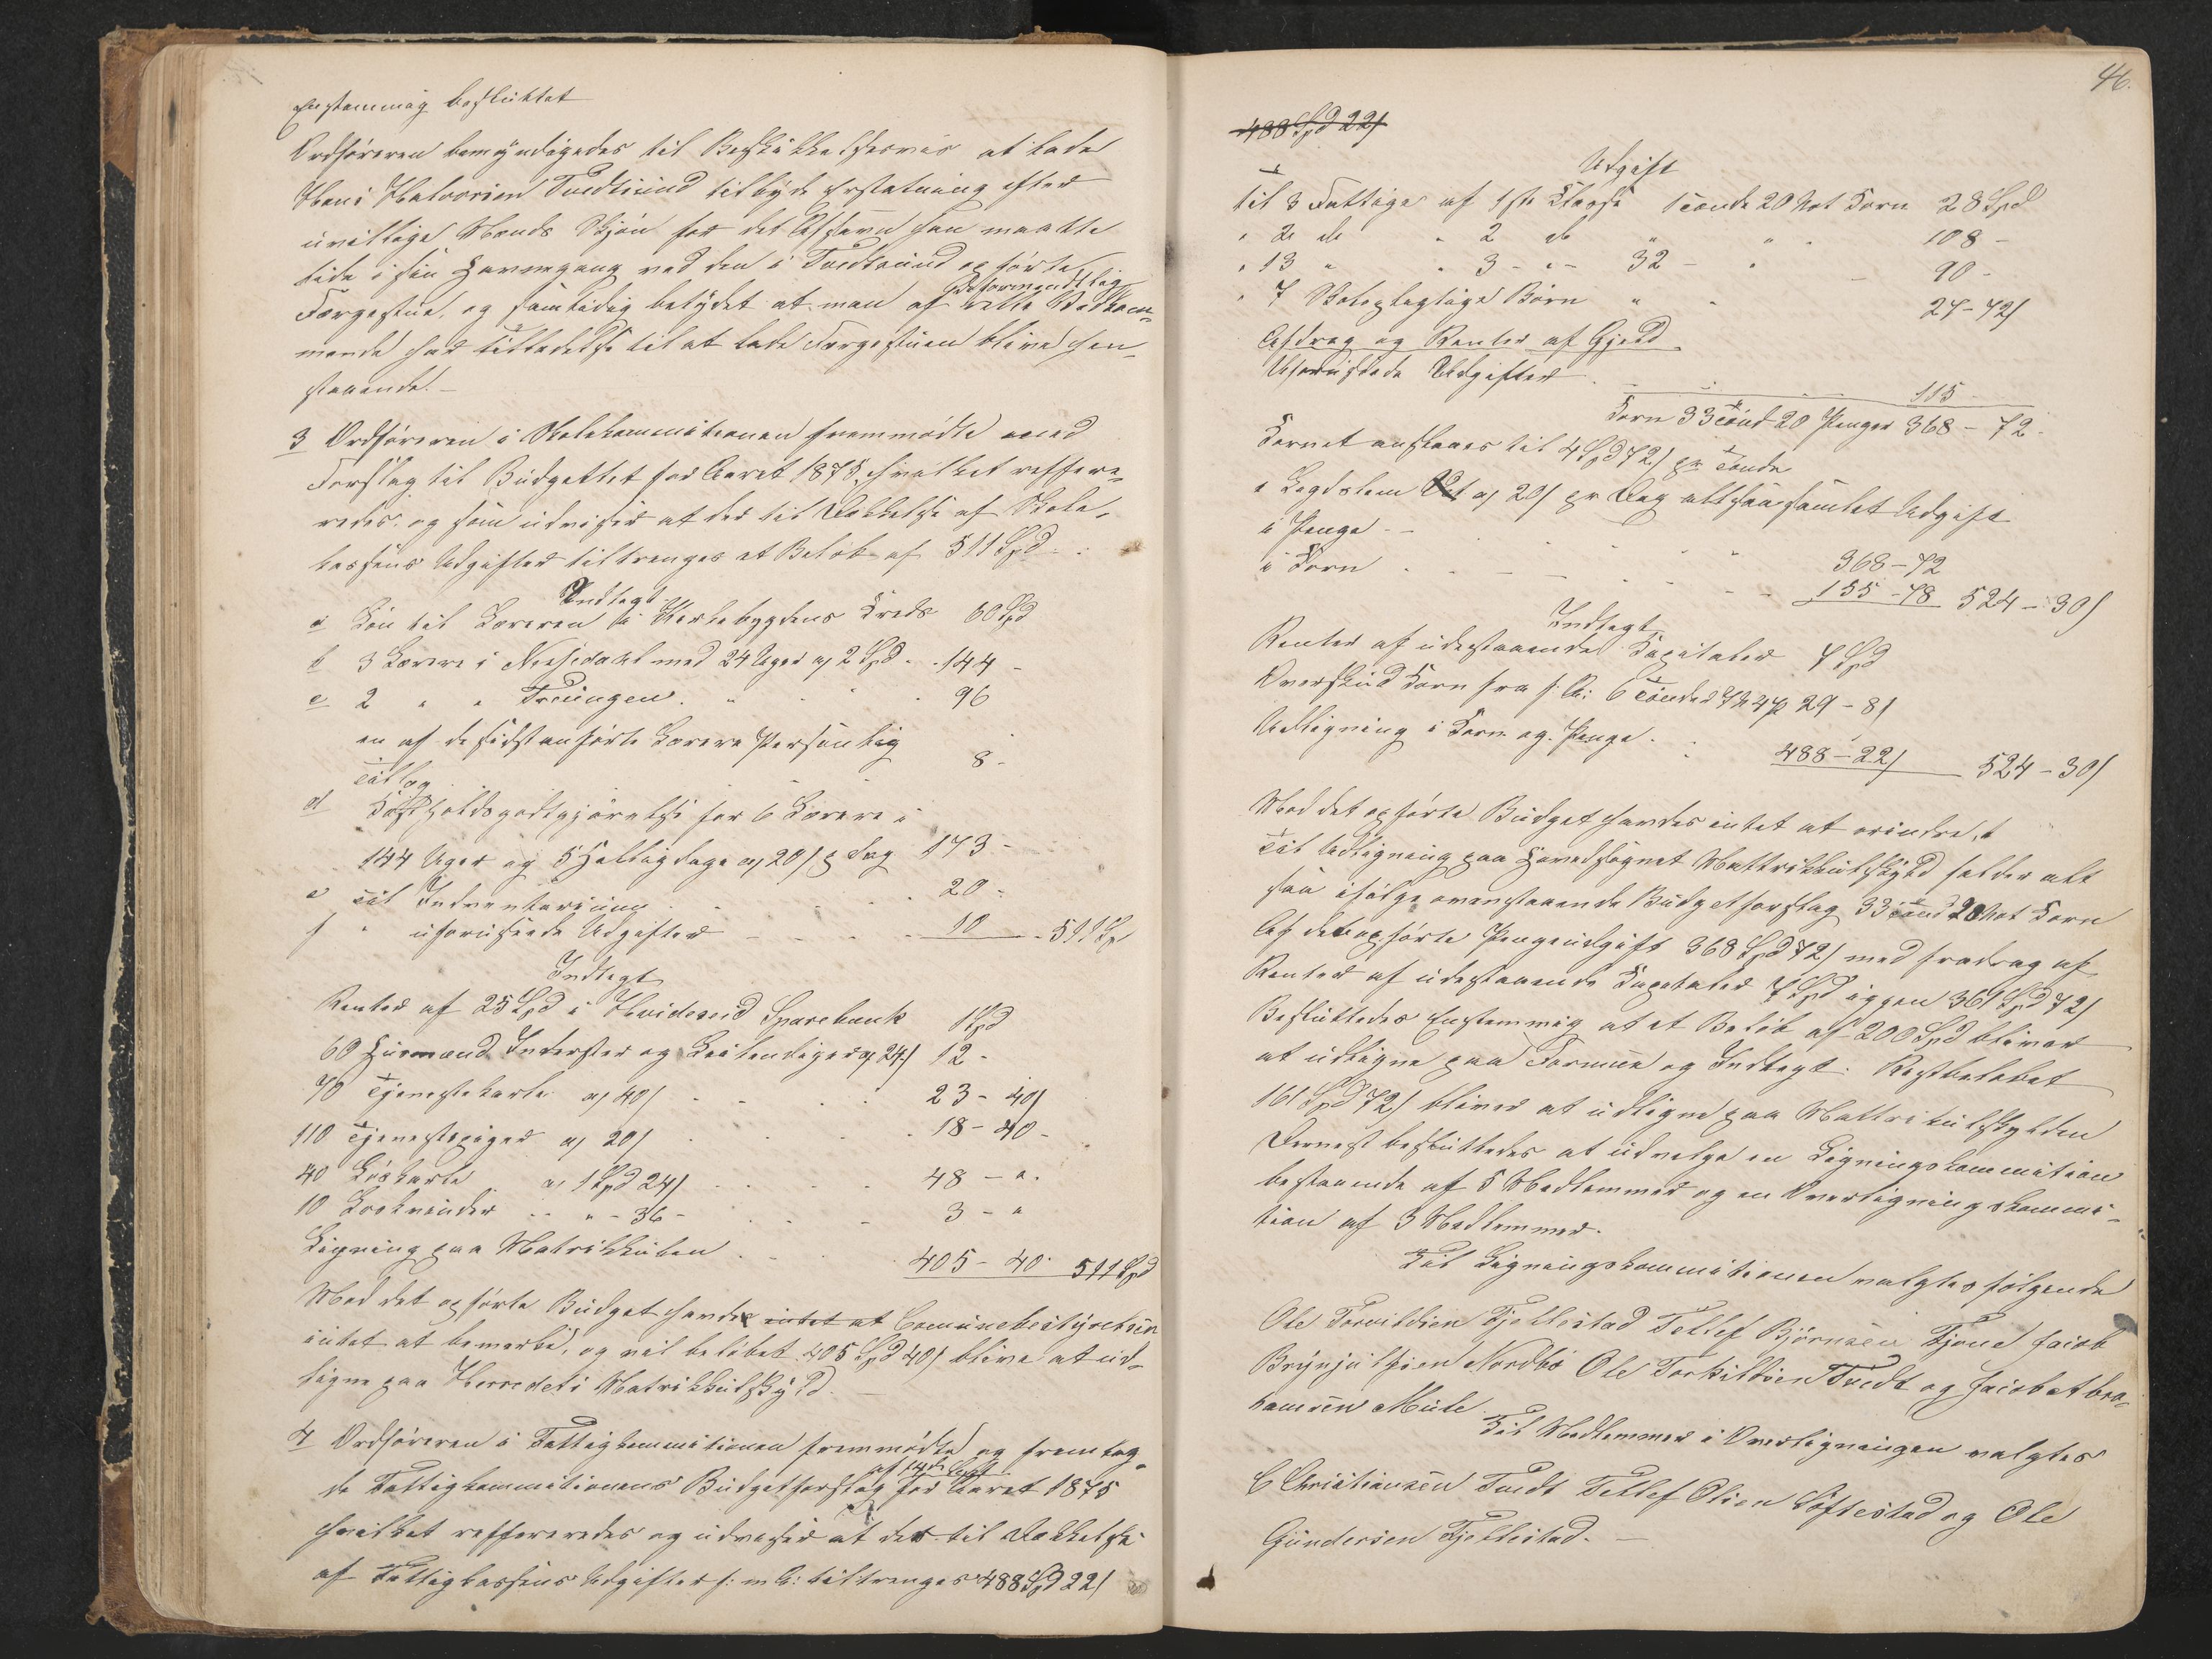 Enstemmig besluttet
Ordføreren bemyndigedes til Beskikkelsesvis at lade
Hans Halvorsen Tvedtsund tilbyde Erstatning efter
uvillige Mænds Skjøn for det Afsavn han maatte
lide i sin Havnegang ved den i Tvedtsund opførte
formentlig
Færgestue, og samtidig betydet at man af rette Vedkom-
mende har Tilladelse til at lade Færgestuen blive hen-
staaende.
3 Ordføreren i Skolekommisionen fremmødte med
Forslag til Budgettet for Aaret 1875, hvilket reffere-
redes, og som udviser at der til Dækkelse af Skole-
kassens Udgifter tiltrenges et Beløb af 511 Spd
Indtægt
a Løn til Læreren i Kirkebygdens Kreds 60 Spd
b 3 Lærere i Nissedahl med 24 Uger a 2 Spd 144 -
c 2 " " Treungen " 96
en af de sidstanførte Lærere Personlig
Tillæg 8 -
d Kostholdsgodtgjørelse for 6 Lærere i
144 Uger og 5 Helligdage a 20 s p Dag 173 -
e Til Inventarium 20 -
f " uforudseede Udgifter 10 511 Sp
Indtægt
Renter af 25 Spd i Hvideseid Sparebank 1 Spd
60 Husmænd Inderster og Leilendiger a 24 s 12 -
70 Tjenestekarle a 40 s 23 - 40 s
110 Tjenestepiger a 20 s 18 - 40 -
40 Løskarle a 1 Spd 24 s 48 - " -
10 Løskvinder " - 36 - 3 - "
Ligning paa Matrikkulen 405 - 40 - 511 Spd
Mod det opførte Budget havde intet at Comunebestyrelsen
intet at bemærke, og vil beløbet 405 Spd 40 s blive at ud-
ligne paa Herredets Matrikkulskyld.
4 Ordføreren i Fattigkommisionen fremmødte og fremlag-
af 14de Sept
de Fattigkommisionens Budgetforslag for Aaret 1875
hvilket reffereredes og udviser at der til Dækkelse
af Fattigkassens Udgifter f: m A: tiltrenges 488 Spd 22 s
46.
488 Spd 22 s
Udgift
Til 3 Fattige af 1ste Klasse 1 Tønde 20 Pot Korn 28 Spd
" 2 do " 2 do " " " 108 -
" 13 " " 3 - " - 32 - " 90 -
" 7 Skolepligtige Børn " " 27 - 72 s
Afdrag og Renter af Gjeld
Uforudseede Udgifter 115
Korn 33 Tønd 20 Penger 368 - 72 -
Kornet ansloes til 4 Spd 72 s pr Tønde
a Legdslem a 20 s pr Dag altsaa samlet Udgift
i Penge - 368 - 72
i Korn 155 - 78 524 - 30 s
Indtægt
Renter af udestaaende Kapitaler 7 Spd
Overskud Korn fra f. A: 6 Tønder 29 - 8 s
Udligning i Korn og Penge 488 - 22 s 524 - 30 s
Mod det opførte Budget havdes intet at erindre,
Til Udligning paa Hovedsognet Mattrikkulskyld falder alt
saa ifølge ovenstaaende Budgetforslag 33 Tønd 20 Pot Korn
Af den opførte Pengeudgift 368 Spd 72 s med fradrag af
Renter af udestaaende Kapitaler 7 Spd iggen 361 Spd 72 s
Besluttedes Enstemmig at et Beløb af 200 Spd bliver
at udligne paa Formue og Indtægt. Restbeløbet
161 Spd 72 s bliver at udligne paa Mattrikulskylden
Dernest besluttedes at udvælge en Ligningskommision
bestaaende af 5 Medlemmer og en Overligningskommi-
sion af 3 Medlemmer.
Til Ligningskommisionen valgtes følgende
Ole Torvildsen Fjellestad Tellef Bjørnsen Tjøne Jacob
Brynjulfsen Nordbø Ole Torkildsen Tvedt og Jacob Abra-
hamsen Mule.
Til Medlemmer i Overligningen valgtes
C Christiansen Tvedt Tellef Olsen Løftestad og Ole
Gundersen Fjellestad. -